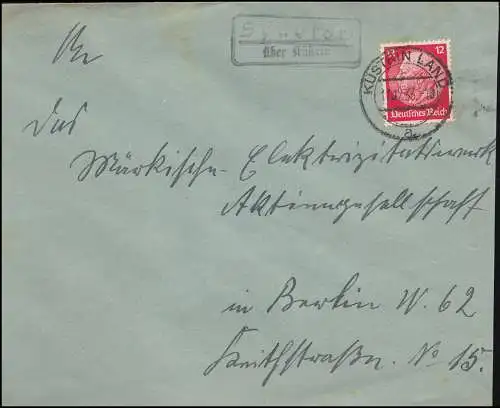 über Küstrin
KÜSTRIN LAND
a
12
Deutsches Reich
An
das
Märkische-Elektrizitätswerk
Aktiengesellschaft
in Berlin W. 62
Keithstraße. No 15.